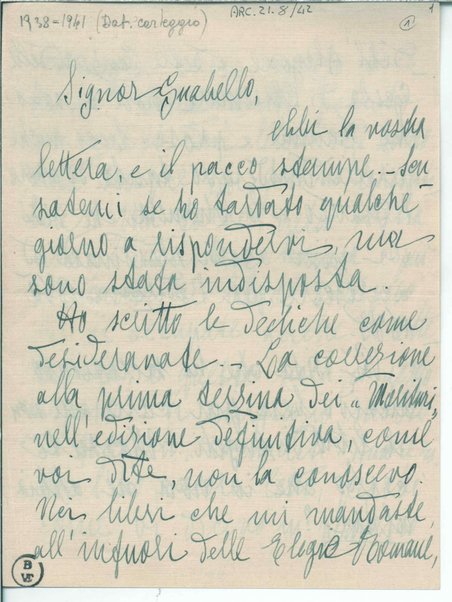 1938-1941 (Dat. carteggio)
ARC. 21. 8/42
1
1
Signor Guabello,
ebbi la vostra
lettera, e il pacco stampe. - Scu
satemi se ho tardato qualche
giorno a rispondervi, ma
sono stata indisposta.
Ho scritto le dediche come
desideravate. - La correzione
alla prima terzina dei „
nell'edizione definitiva, come
voi dite, non la conoscevo.
Nei libri che mi mandaste,
all'infuori delle Elegie Romane,
B
VE